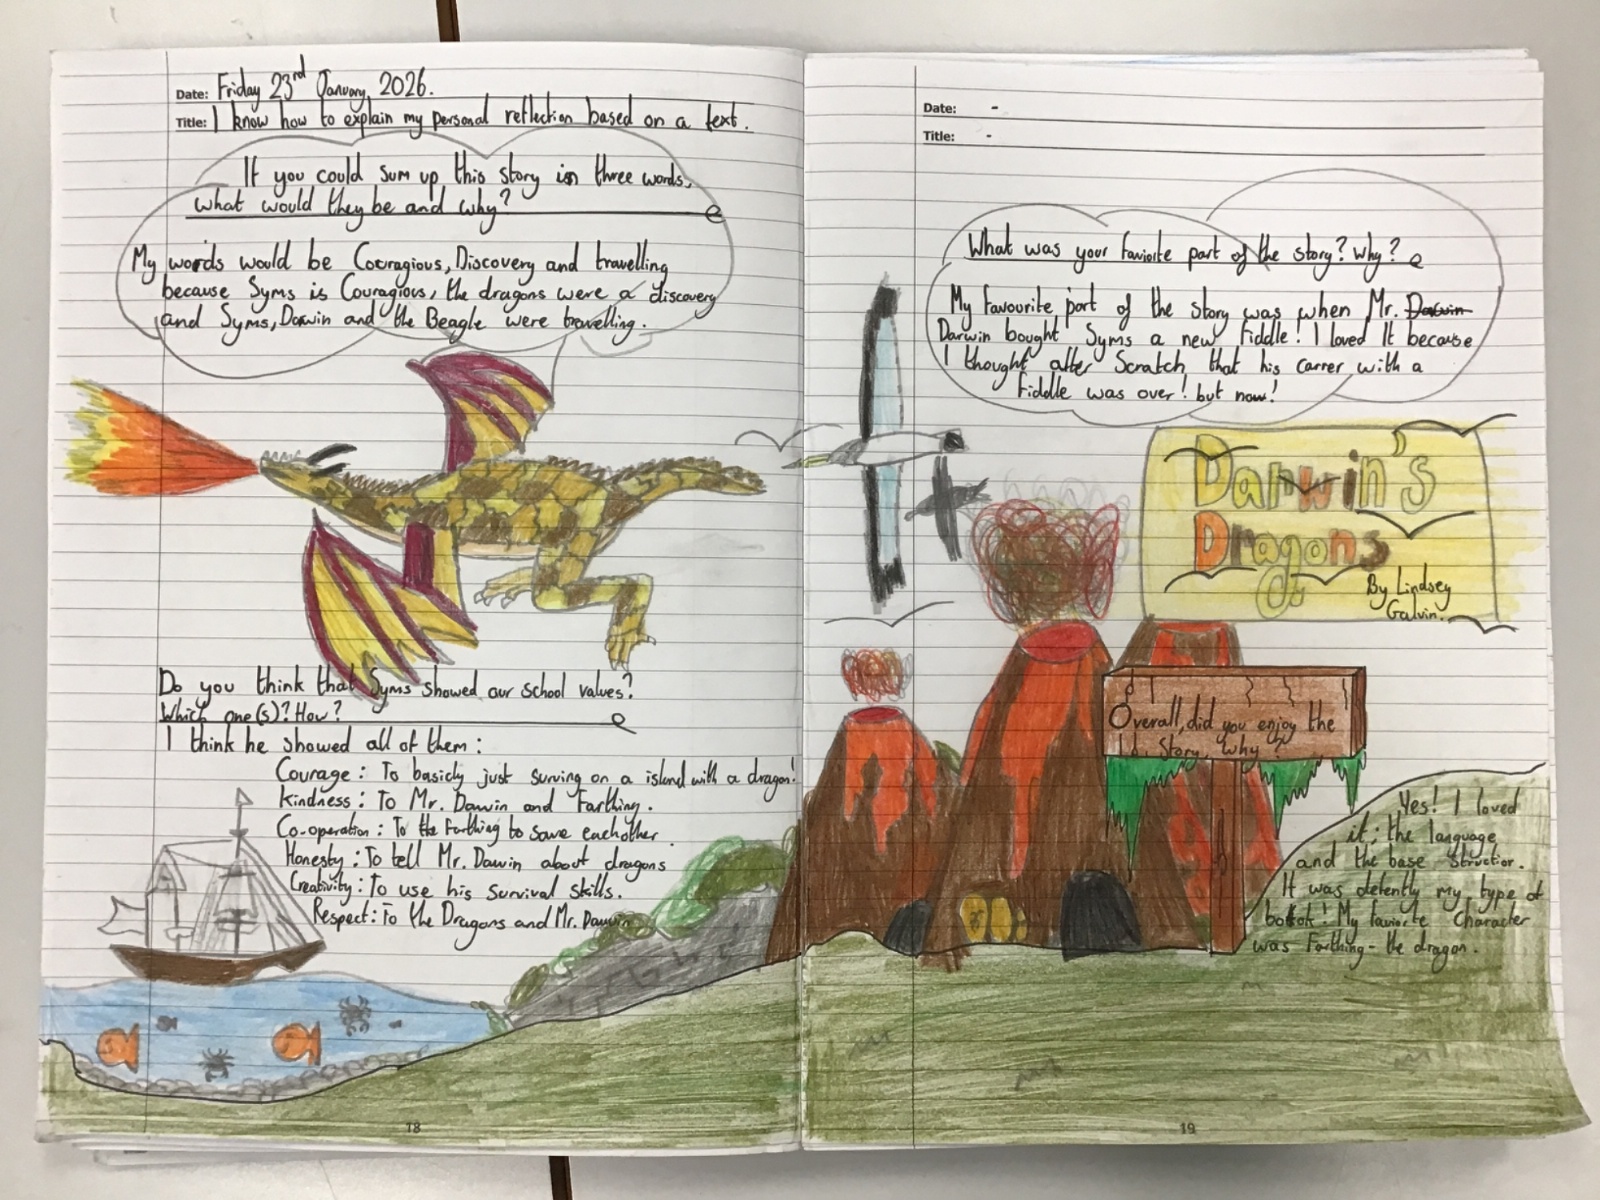 Date: Friday 23rd January, 2026.
Title: I know how to explain my personal reflection based on a text.
If you could sum up this story in three words,
what would they be and why?
My words would be Couragious, Discovery and travelling
because Syms is Couragious, the dragons were a discovery
and Syms, Darwin and the Beagle were travelling.
Do you think that Syms showed our school values?
Which one(s)? How?
I think he showed all of them:
Courage: To basicly just surving on a island with a dragon!
Kindness: To Mr. Darwin and Farthing.
Co-operation: To the Farthing to save eachother.
Honesty: To tell Mr. Darwin about dragons
Creativity: To use his survival skills.
Respect: To the Dragons and Mr. Darwin
18
Date: -
Title: -
What was your faviorite part of the story? Why?
My favourite part of the story was when Mr. Darwin
Darwin bought Syms a new Fiddle! I loved It because
I thought after Scratch that his carrer with a
Fiddle was over! but now!
Darwin's
Dragons
By Lindsey
Galvin.
Overall, did you enjoy the
story, why?
Yes! I loved
it; the language
and the base structior.
It was defently my type of
book! My faviorite character
was Farthing - the dragon.
19